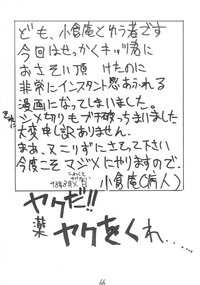 ども、小倉庵とゆう者です
今回はせっかくキッヅ君に
おさそい頂けたのに
非常にインスタント感あふれる
漫画になってしまいました。
それにシメ切りもブチ破っちまいました
大変申し訳ありません.
まぁ、ヌニリずにさせて下さい
今度こそマジメにやりますので.
小倉庵(病人)
ヤクだ!!
薬 ヤクをくれ…
66